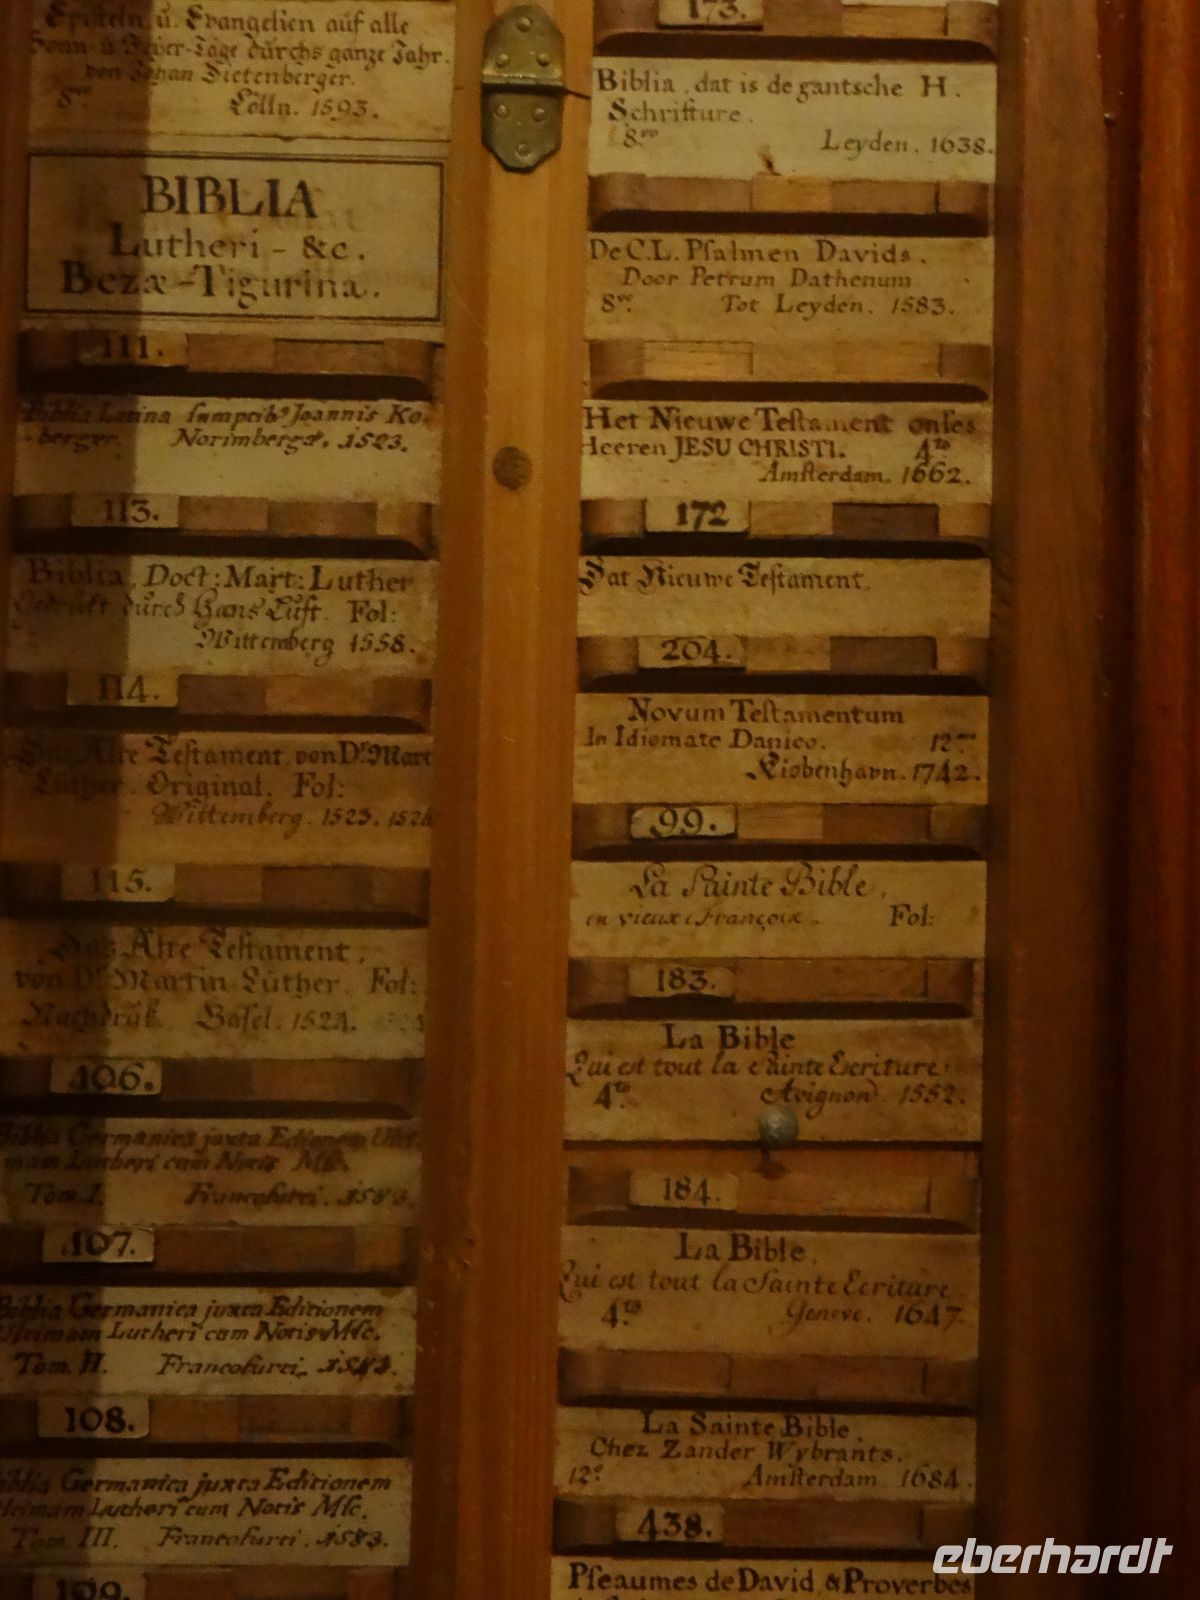 Episteln ü. Evangelien auf alle
Sonn- ü Feyer-Tage dürchs gantze Jahr.
von Johan Dietenberger.
8vo Cölln. 1593.
BIBLIA
Lutheri - &c.
Bezæ - Tigurina.
111.
Biblia Latina sumptib9 Joannis Ko-
berger. Norimbergæ. 1523.
113.
Biblia, Doct: Mart: Luther
Gedrükt dürch Hans Lüft. Fol:
Wittemberg 1558.
114.
Das Alte Testament von Dr Mart
Luther. Original. Fol:
Wittemberg. 1523. 1524
115.
Das Alte Testament.
von Dr Martin Lüther. Fol:
Nachdrük Basel. 1524.
106.
Biblia Germanica juxta Editionem Ulti-
mam Lutheri cum Notis Msc.
Tom I. Francofurti. 1583.
107.
Biblia Germanica juxta Editionem
Lutheri cum Notis Msc.
Tom. II. Francofurti. 1583.
108.
Biblia Germanica juxta Editionem
Lutheri cum Notis Msc.
Tom III. Francofurti. 1583.
109.
173.
Biblia, dat is de gantsche H.
Schrifture.
8vo Leyden. 1638.
De C.L. Psalmen Davids.
Door Petrum Dathenum
8vo. Tot Leyden. 1583.
Het Nieuwe Testament onses
Heeren JESU CHRISTI. 4to
Amsterdam. 1662.
172
Dat Nieuwe Testament.
204.
Novum Testamentum
In Idiomate Danico. 12mo
Kiobenhavn. 1742.
99.
La Sainte Bible.
en vieux François. Fol:
183.
La Bible
Qui est tout la Sainte Escriture
4to. Avignon. 1552.
184.
La Bible.
Qui est tout la Sainte Ecriture
4to. Geneve. 1647.
La Sainte Bible.
Chez Zander Wybrants.
12o Amsterdam. 1684.
438.
Pseaumes de David & Proverbes
eberhardt